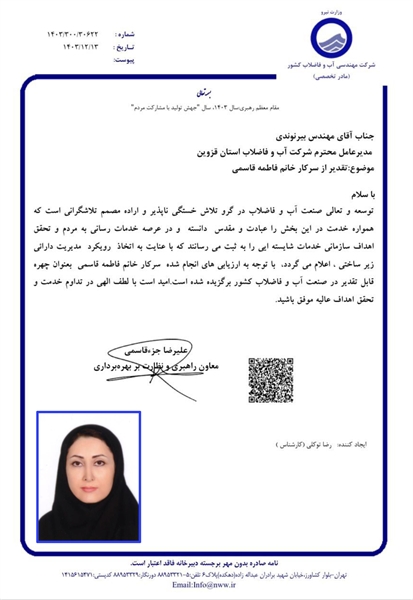 وزارت نیرو
شرکت مهندسی آب و فاضلاب کشور
(مادر تخصصی)
شماره : ۱۴۰۳/۳۰۰/۳۰۶۲۲
تاریخ : ۱۴۰۳/۱۲/۱۳
پیوست:
بسمه تعالی
مقام معظم رهبری:سال ۱۴۰۳، سال "جهش تولید با مشارکت مردم"
جناب آقای مهندس بیرنوندی
مدیرعامل محترم شرکت آب و فاضلاب استان قزوین
موضوع:تقدیر از سرکار خانم فاطمه قاسمی
با سلام
توسعه و تعالی صنعت آب و فاضلاب در گرو تلاش خستگی ناپذیر و اراده مصمم تلاشگرانی است که
همواره خدمت در این بخش را عبادت و مقدس دانسته و در عرصه خدمات رسانی به مردم و تحقق
اهداف سازمانی خدمات شایسته ایی را به ثبت می رسانند که با عنایت به اتخاذ رویکرد مدیریت دارائی
زیر ساختی ، اعلام می گردد، با توجه به ارزیابی های انجام شده سرکار خانم فاطمه قاسمی بعنوان چهره
قابل تقدیر در صنعت آب و فاضلاب کشور برگزیده شده است.امید است با لطف الهی در تداوم خدمت و
تحقق اهداف عالیه موفق باشید.
علیرضا جزءقاسمی
معاون راهبری و نظارت بر بهره‌برداری
ایجاد کننده: رضا توکلی (کارشناس )
نامه صادره بدون مهر برجسته دبیرخانه فاقد اعتبار است.
تهران-بلوار کشاورز،خیابان شهید برادران عبداله زاده(دهکده)پلاک۶ تلفن:۵-۸۸۹۵۳۳۲۱ دورنگار:۸۸۹۵۳۳۲۹ کدپستی:۱۴۱۵۶۱۵۴۷۱
Email:Info@nww.ir